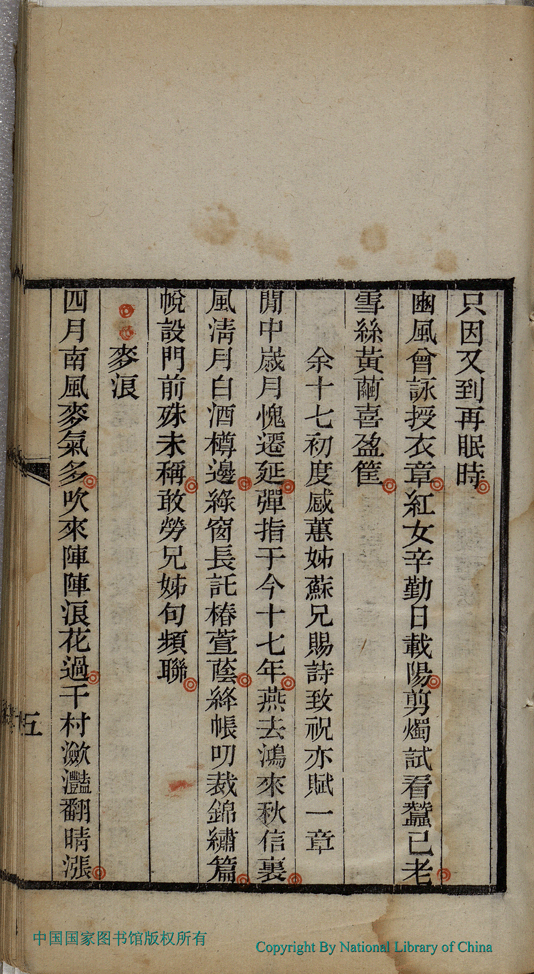 只因又到再眠時
豳風曾詠授衣章紅女辛勤日載陽剪燭試看蠶已老
雪絲黃繭喜盈筐
余十七初度感蕙姊蘇兄賜詩致祝亦賦一章
閒中歲月愧遷延彈指于今十七年燕去鴻來秋信裏
風淸月白酒樽邊綠窗長託椿萱蔭絳帳叨裁錦繡篇
帨設門前殊未稱敢勞兄姊句頻聯
麥浪
四月南風麥氣多吹來陣陣浪花過千村瀲灩翻晴漲
五
中国国家图书馆版权所有
Copyright By National Library of China